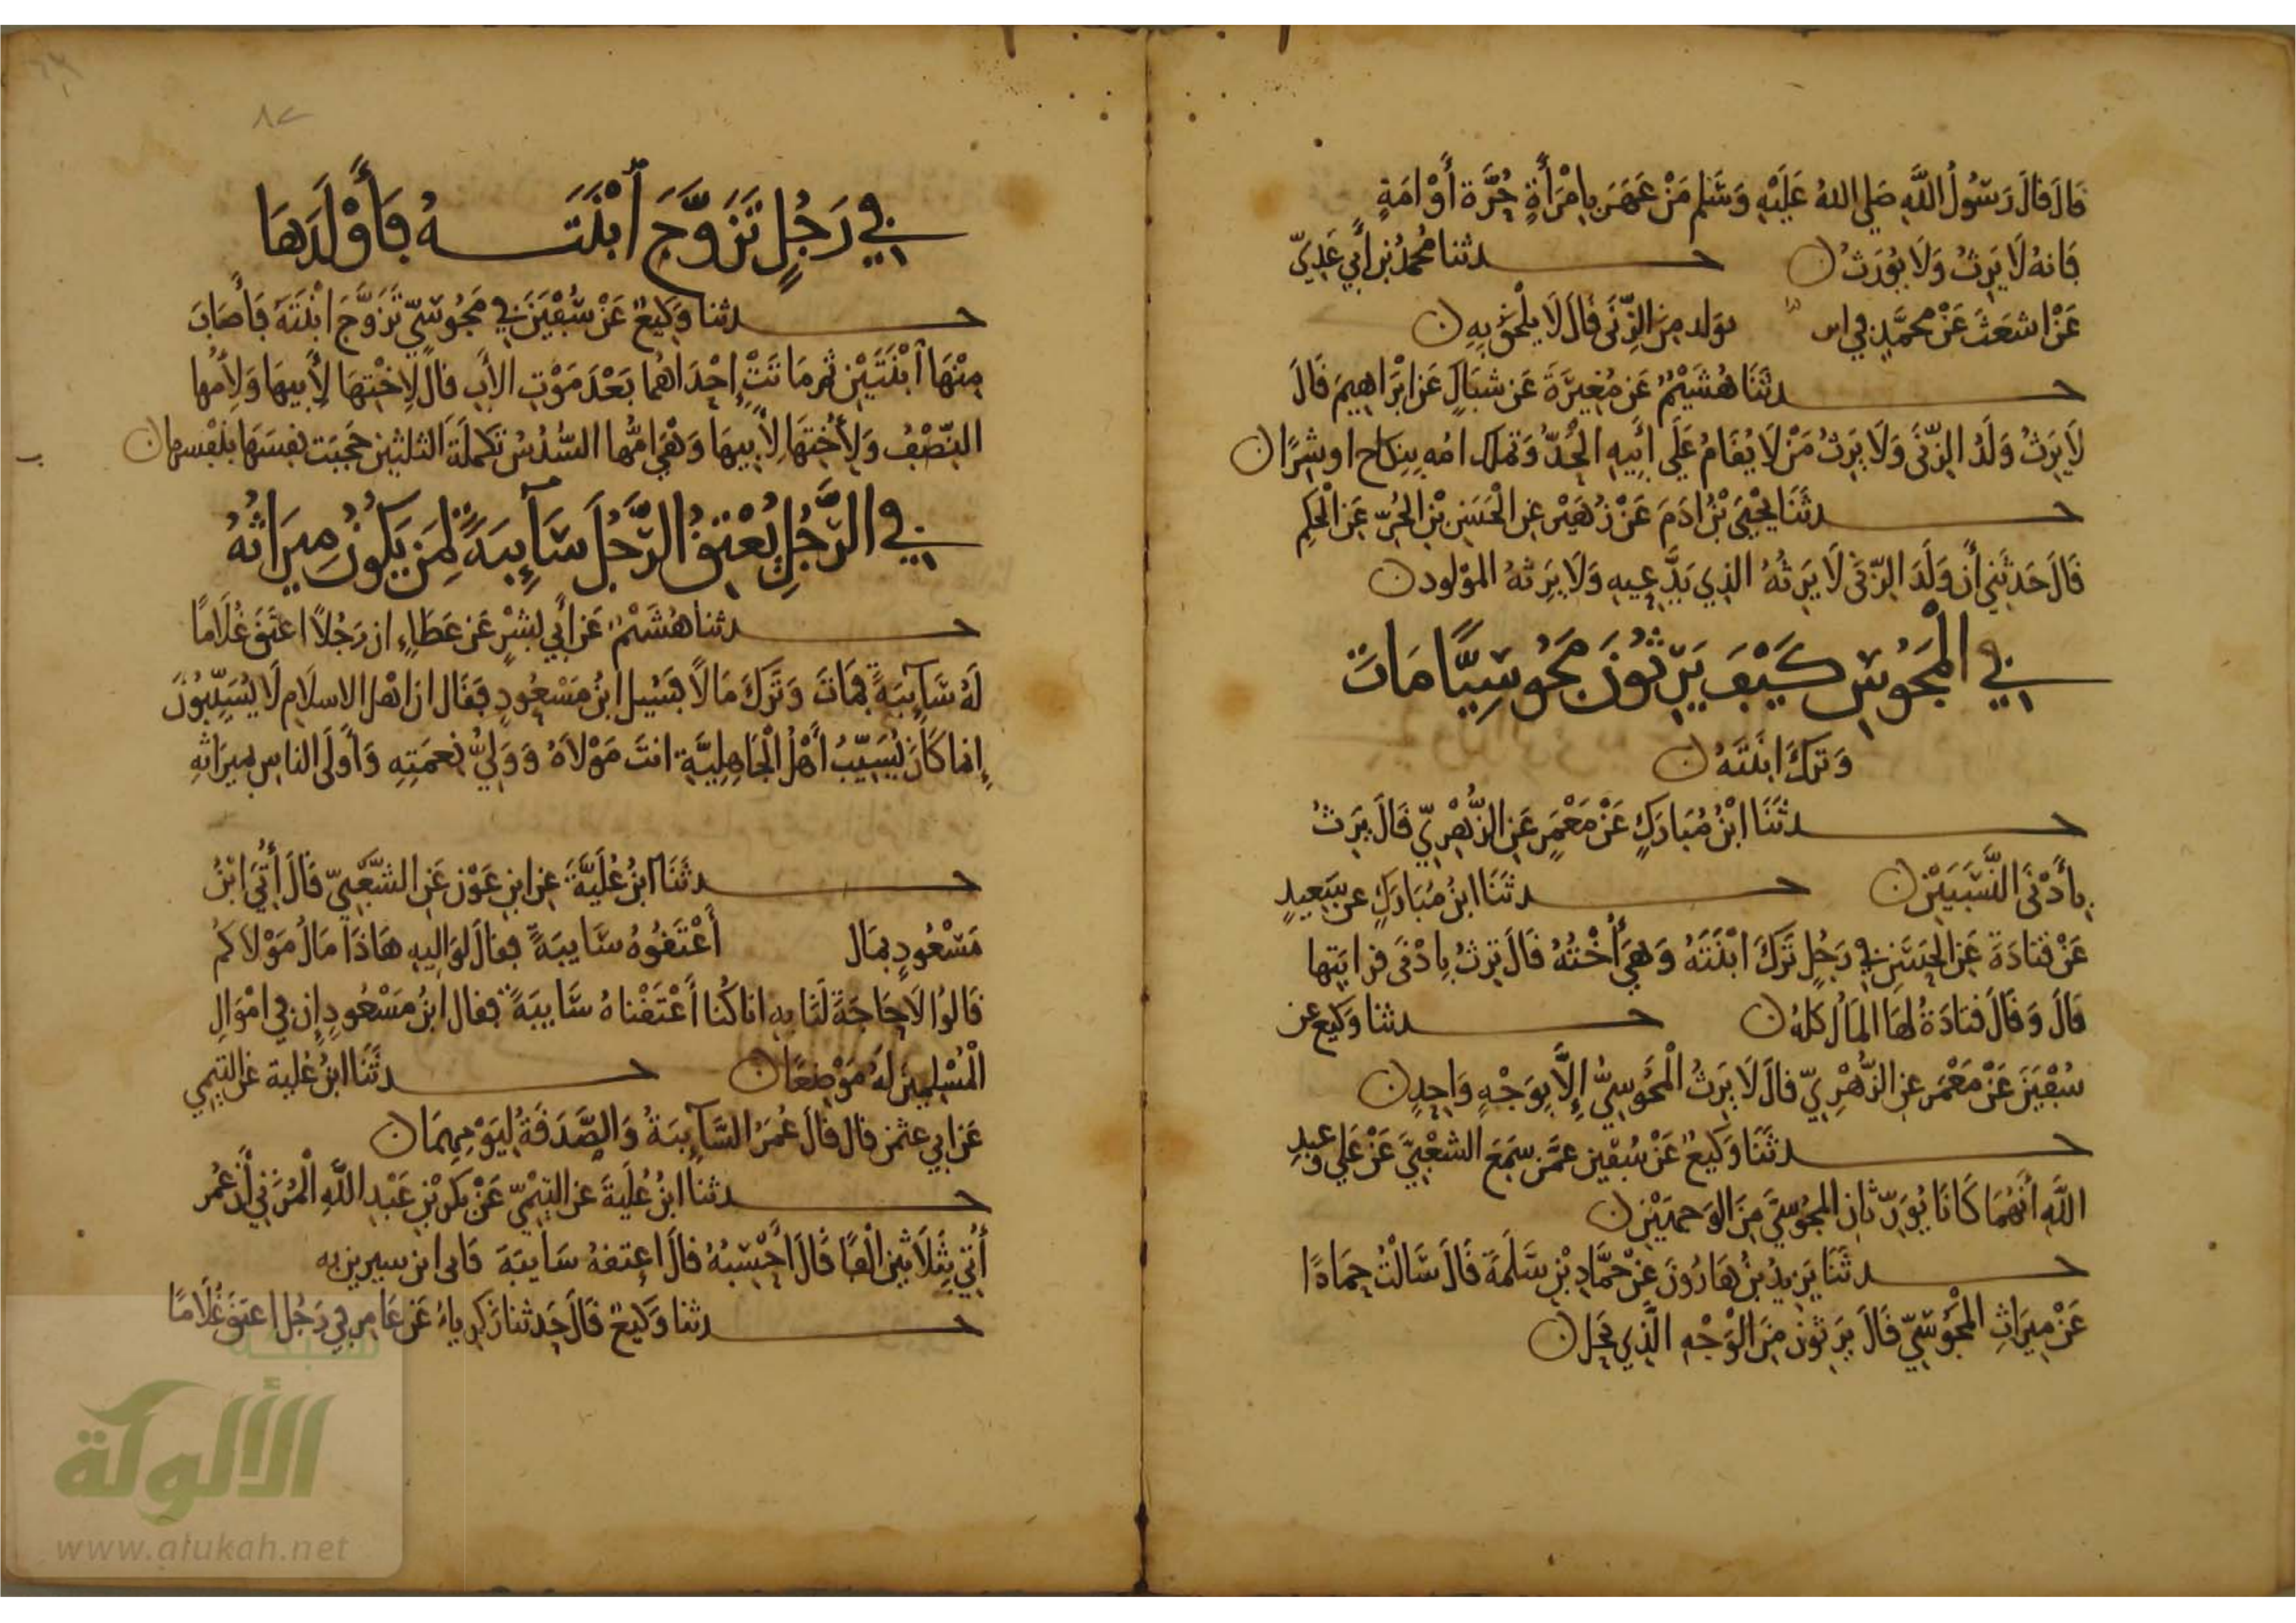 قَالَ قَالَ رَسُولُ اللَّهِ صَلى اللهُ عَلَيْهِ وَسَلم مَنْ عَهَرَ بِامْرَأَةٍ حُرَّة أَوْ امَةٍ
فَانهُ لَا يَرِثُ وَلَا يُورَثُ ن حـدثنا مُحمدُ بْن أَبي عَدِيّ
عَنْ اشعَثَ عَنْ محمَّدٍ في ابن بولد مِنَ الزِّنَى قالَ لَا يلْحَقُ بِهِ ن
حـدثَنَا هُشَيْمٌ عَن مُغِيرَةَ عَن شبَاكٍ عَن ابْرَاهِيمَ قَالَ
لَا يَرِثُ وَلَدُ الزِّنَى وَلَا يَرِثُ مَنْ لَا يُقَامُ عَلَى أَبِيهِ الْحَدُّ وَتملك امه بِنِكاح او شِرًا ن
حـدثَنَا يَحْيَى بْنُ ادَمَ عَنْ زُهَيْر عن الْحَسَنِ بْنِ الْحُرّ عَن الْحَكِم
قَالَ حَدثَنِي أَن وَلَدَ الزّنَى لَا يَرِثهُ الذِي يَدَّعِيهِ وَلَا يَرِثهُ المَوْلود ن
في الْمَجُوسِ كَيْفَ يَرِثُونَ مَجُوسِيًّا مَاتَ
وَتَرَكَ ابْنَتَهُ ن
حـدثَنَا ابْنُ مُبَارَكٍ عَنْ مَعْمَرٍ عَن الزُّهْرِيّ قَالَ يَرِثُ
بِأَدْنَى النَّسَبَيْن ن حـدثَنَا ابنُ مُبَارَكٍ عن سَعِيدٍ
عَنْ قتَادَةَ عَن الحَسَن في رَجُلٍ تَرَكَ ابْنَتَهُ وَهِيَ أُخْتُهُ قَالَ تَرِثُ بِادْنَى قرابَتِها
قَالَ وَقَالَ قتادَةُ لهَا المَالُ كلهُ ن حـدثنا وَكيع عن
سُفْيَنَ عَنْ مَعْمَر عن الزُّهْرِيّ قَالَ لَا يَرِثُ الْمَجُوسِيُّ إِلَّا بِوَجْهٍ وَاحِدٍ ن
حـدثَنَا وَكيعٌ عَنْ سُفْيَن عمَّن سَمِعَ الشعْبِيَّ عَنْ عَلي وعبدِ
اللَّهِ أَنهُمَا كَانَا يُوَرّثَانِ المجُوسيَّ مِنَ الوَجهَيْن ن
حـدثَنَا يَزيدُ بنُ هَارُونَ عَنْ حمَّادِ بْنِ سَلَمَةَ قَالَ سَالْتُ حمَادًا
عَنْ مِيرَاثِ الْمَجُوسيّ قَالَ يَرِثُونَ مِنَ الْوَجْهِ الَّذِي يَحِلُ ن
٨٢
في رَجُلٍ تَزَوَّجَ ابْنَتَـهُ فَأَوْلَدَهَا
حـدثنا وَكِيعٌ عَنْ سُفْيَنَ في مَجُوسيّ تَزَوَّجَ ابْنَتَهُ فَأَصَابَ
مِنْهَا ابْنَتَيْن ثم مَاتَتْ إِحْدَاهُما بَعْدَ مَوْتِ الأَبِ قالَ لِاخْتهَا لِأَبِيهَا وَلِأُمها
النِّصْفُ وَلِأُخْتِهَا لِأَبِيهَا وَهْيَ امُّها السُّدُسُ تكملَة الثلثين حَجَبَت نفسَهَا بنفْسها ن
في الرَّجُلِ يُعْتِقُ الرَّجُلَ سَآئِبَةً لِمَن يَكُونُ مِيرَاثُهُ
حـدثنا هُشَيْمٌ عَن أَبي بشْرٍ عَن عَطَاءٍ ان رَجُلًا اعتَقَ غُلَامًا
لَهُ سَآئِبَةً فمَاتَ وَتَرَكَ مَالًا فَسُيل ابنُ مَسْعُودٍ فَقَالَ ان اهْل الاسلَام لَا يُسَيِّبُونَ
إِنما كَانَ يُسَيِّبُ أَهْلُ الْجَاهِلِيَّةِ انتَ مَوْلَاهُ وَوَلِيُّ نِعمَتِهِ وَأَولَى الناس بمِيرَاثِهِ
حـدثَنَا ابنُ عُلَيَّةَ عن ابن عَوْن عَن الشعْبيّ قَالَ أُتِيَ ابْنُ
مَسْعُودٍ بمَال أَعْتَقُوهُ سَايبَةً فقالَ لِوَاليهِ هَاذَا مَالُ مَوْلَاكُم
قَالُوا لَا حَاجَةَ لَنَا بِهِ انا كُنا أَعْتَقْناهُ سَّايِبَةً فقال ابنُ مَسْعُودٍ إِن في امْوَالِ
الْمُسْلِمِينَ لَهُ مَوْضِعًا ن حـدثَنَا ابنُ عُلية عَن التيمي
عَن ابي عثمن قال قالَ عُمَرُ السَّآئِبَةُ وَالصَّدَقَةُ لِيَوْمِهِمَا ن
حـدثنا ابنُ عُلَيةَ عن التيْميّ عَنْ بكر بْنِ عَبْدِ اللَّهِ الْمُزَنيّ أَن عُمر
أُتِيَ بِثَلَاثِين الْفًا قَالَ احْسَبُهُ قَالَ اعتقهُ سَايبَةَ فَامر ان يشترى به
حـدثنا وَكيعٌ قَالَ حَدثنا زَكرياءُ عَن عَامِر في رَجُل اعتَقَ غُلَامًا
شبكة
الألوكة
www.alukah.net